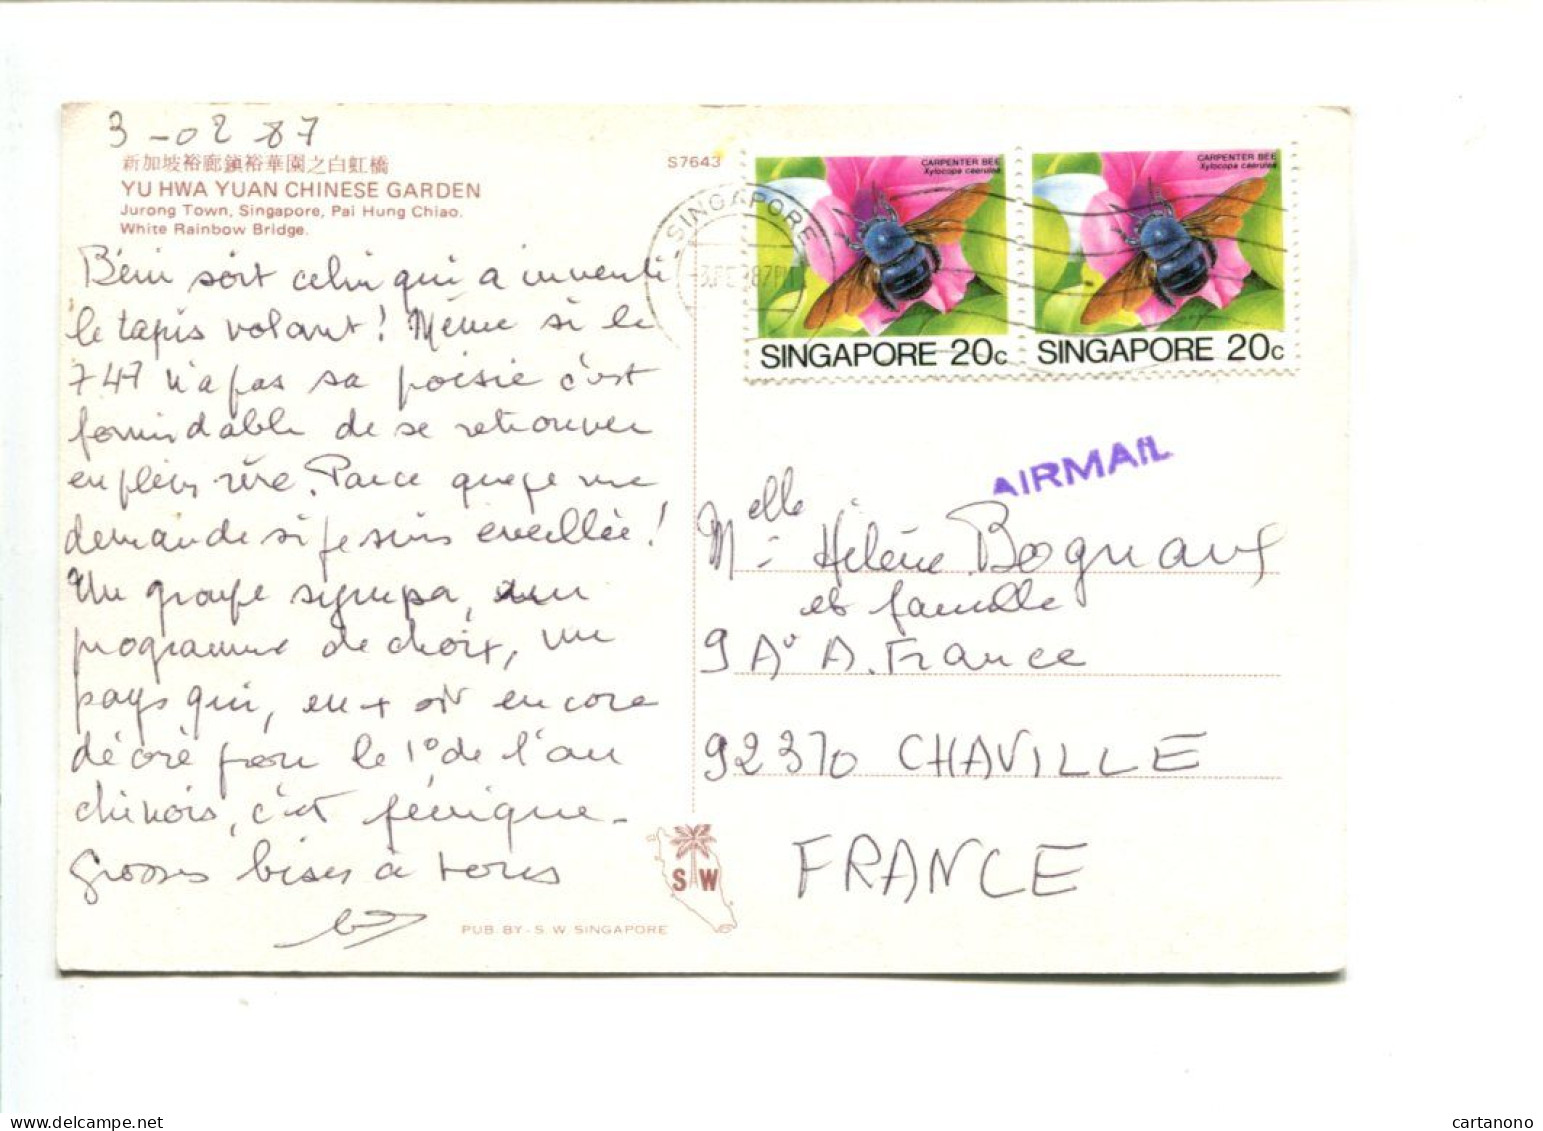 3-02-87
新加坡裕廊鎮裕華園之白虹橋
YU HWA YUAN CHINESE GARDEN
Jurong Town, Singapore, Pai Hung Chiao.
White Rainbow Bridge.
S7643
Béni soit celui qui a inventé
le tapis volant! Même si le
747 n'a pas sa poésie c'est
formidable de se retrouver
en plein rêve. Parce que je me
demande si je suis éveillée!
Un groupe sympa, un
programme de choix, un
pays qui, en + est encore
décoré pour le 1º de l'an
chinois, c'est féérique.
Grosses bises à tous
PUB. BY - S. W. SINGAPORE
S W
SINGAPORE
CARPENTER BEE
Xylocopa caerulea
SINGAPORE 20c
CARPENTER BEE
Xylocopa caerulea
SINGAPORE 20c
AIRMAIL
Melle Hélène
et famille
9 Av A. France
92370 CHAVILLE
FRANCE
www.delcampe.net
cartanono